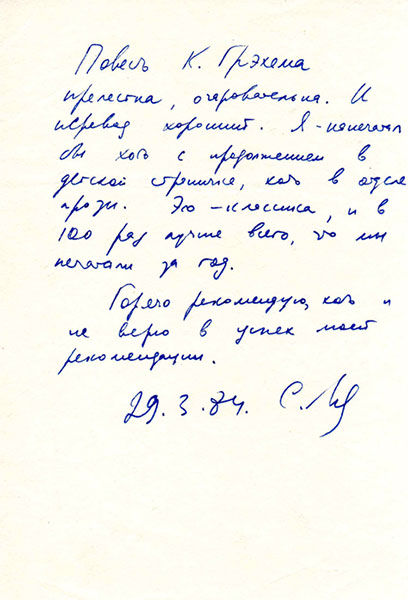 Повесть К. Грэхема
прелестна, очаровательна. И
перевод хороший. Я – напечатал
бы хоть с продолжением в
детской страничке, хоть в отделе
прозы. Это – классика, и в
100 раз лучше всего, что мы
печатали за год.
Горячо рекомендую, хоть и
не верю в успех моей
рекомендации.
29.3.84. С.